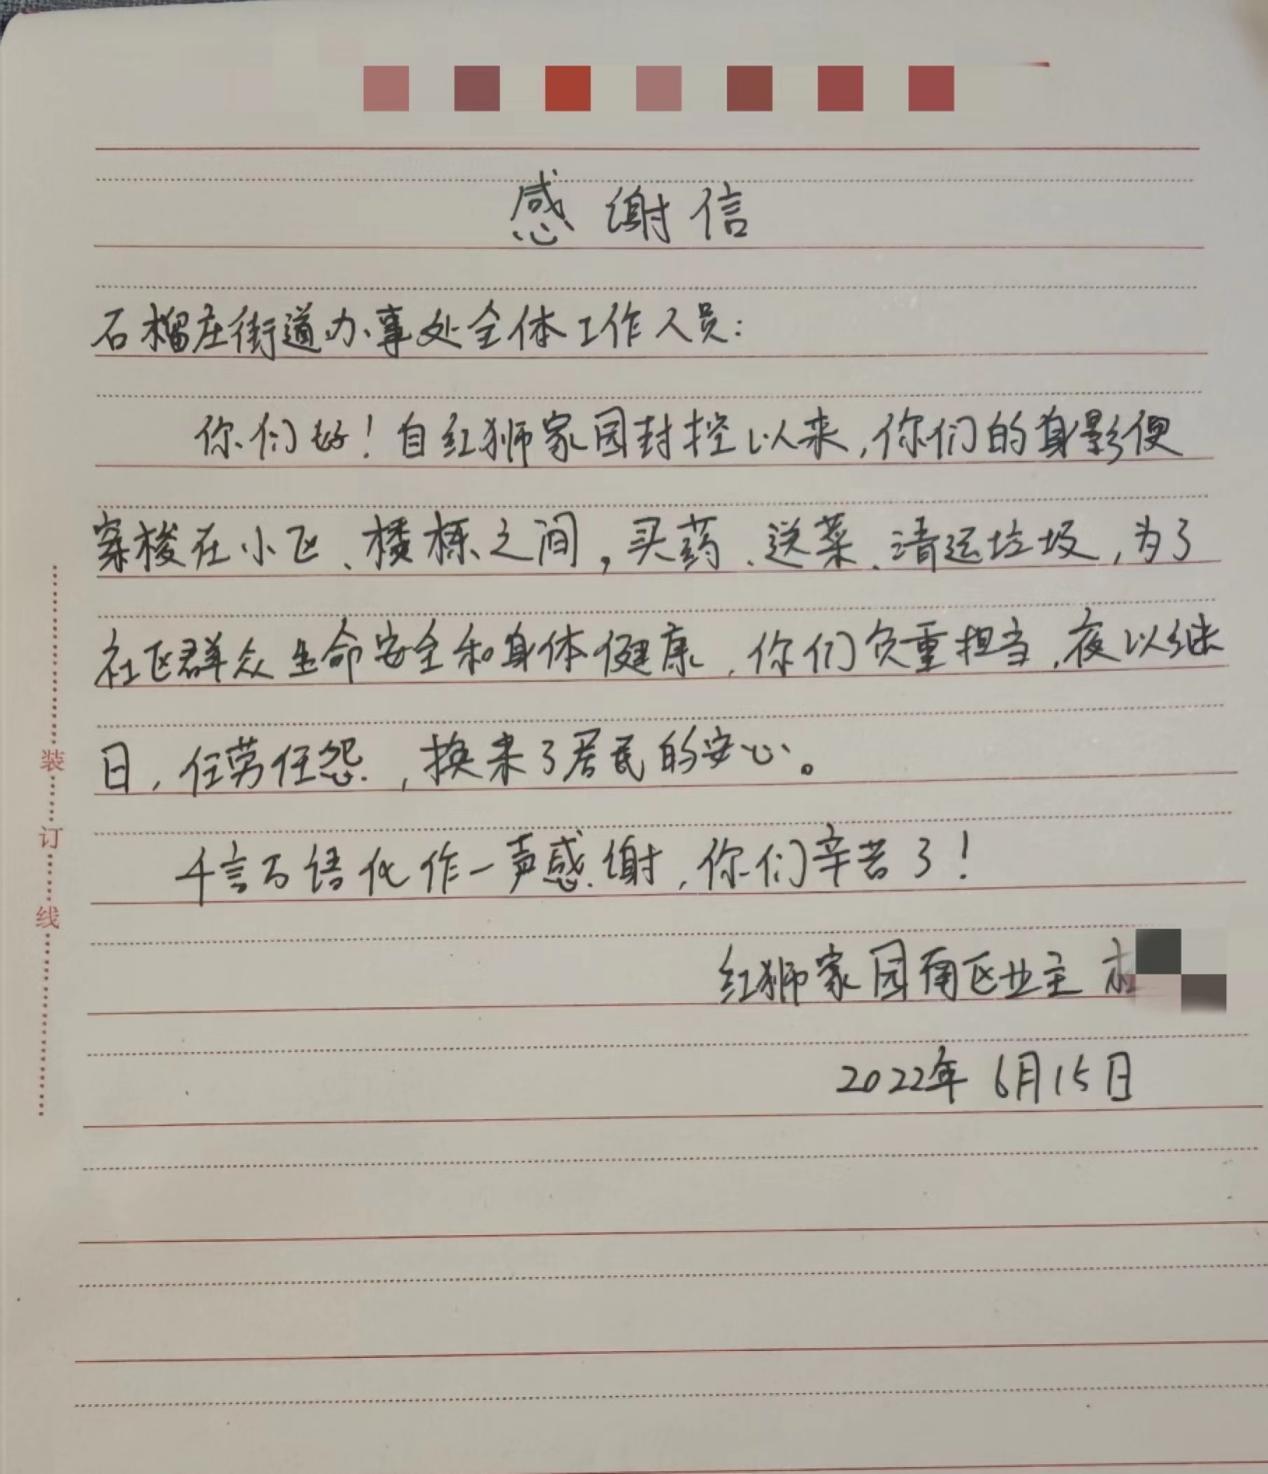 感谢信
石榴庄街道办事处全体工作人员：
你们好！自红狮家园封控以来，你们的身影便
穿梭在小区、楼栋之间，买药、送菜、清运垃圾，为了
社区群众生命安全和身体健康，你们负重担当，夜以继
日，任劳任怨，换来了居民的安心。
千言万语化作一声感谢，你们辛苦了！
红狮家园南区业主
2022年6月15日
装
订
线